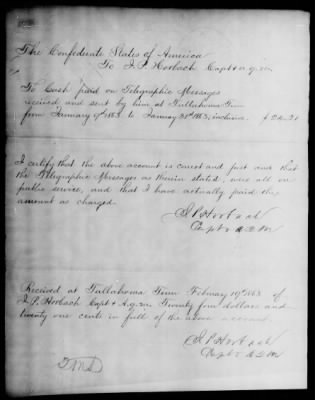 The Confederate States of America
To J. P. Horbach Capt & a.q.m
To Cash paid on Telegraphic Messages
received and sent by him at Tullahoma Tenn
from January 9th 1863 to January 31st 1863, inclusive $ 24.21
I certify that the above account is correct and just and that
the Telegraphic Messages as therein stated, were all on
public service, and that I have actually paid the
amount as charged
J P Horbach
Capt & A Q M
Received at Tullahoma Tenn February 19th 1863 of
J. P. Horbach Capt & A.q.m Twenty four dollars and
twenty one cents in full of the above account
J P Horbach
Capt & A Q M